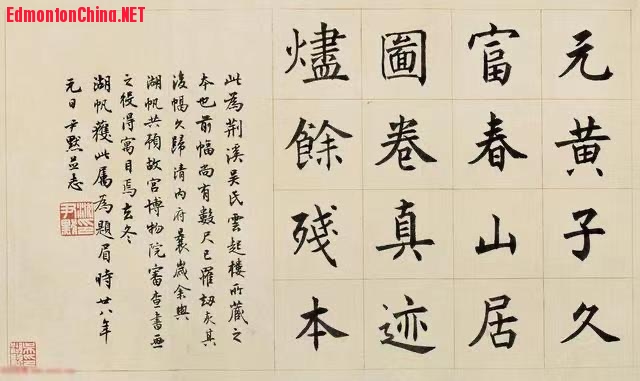 EdmontonChina.NET
元黃子久
富春山居
圖卷真迹
燼餘殘本
此為荆溪吳氏雲起樓所藏之
本也前幅尚有數尺已罹劫灰其
後幅久歸清内府曩歲余與
湖帆共預故宮博物院審查書畫
之役得寓目焉去冬
湖帆獲此屬為題眉時廿八年
元日尹默並志